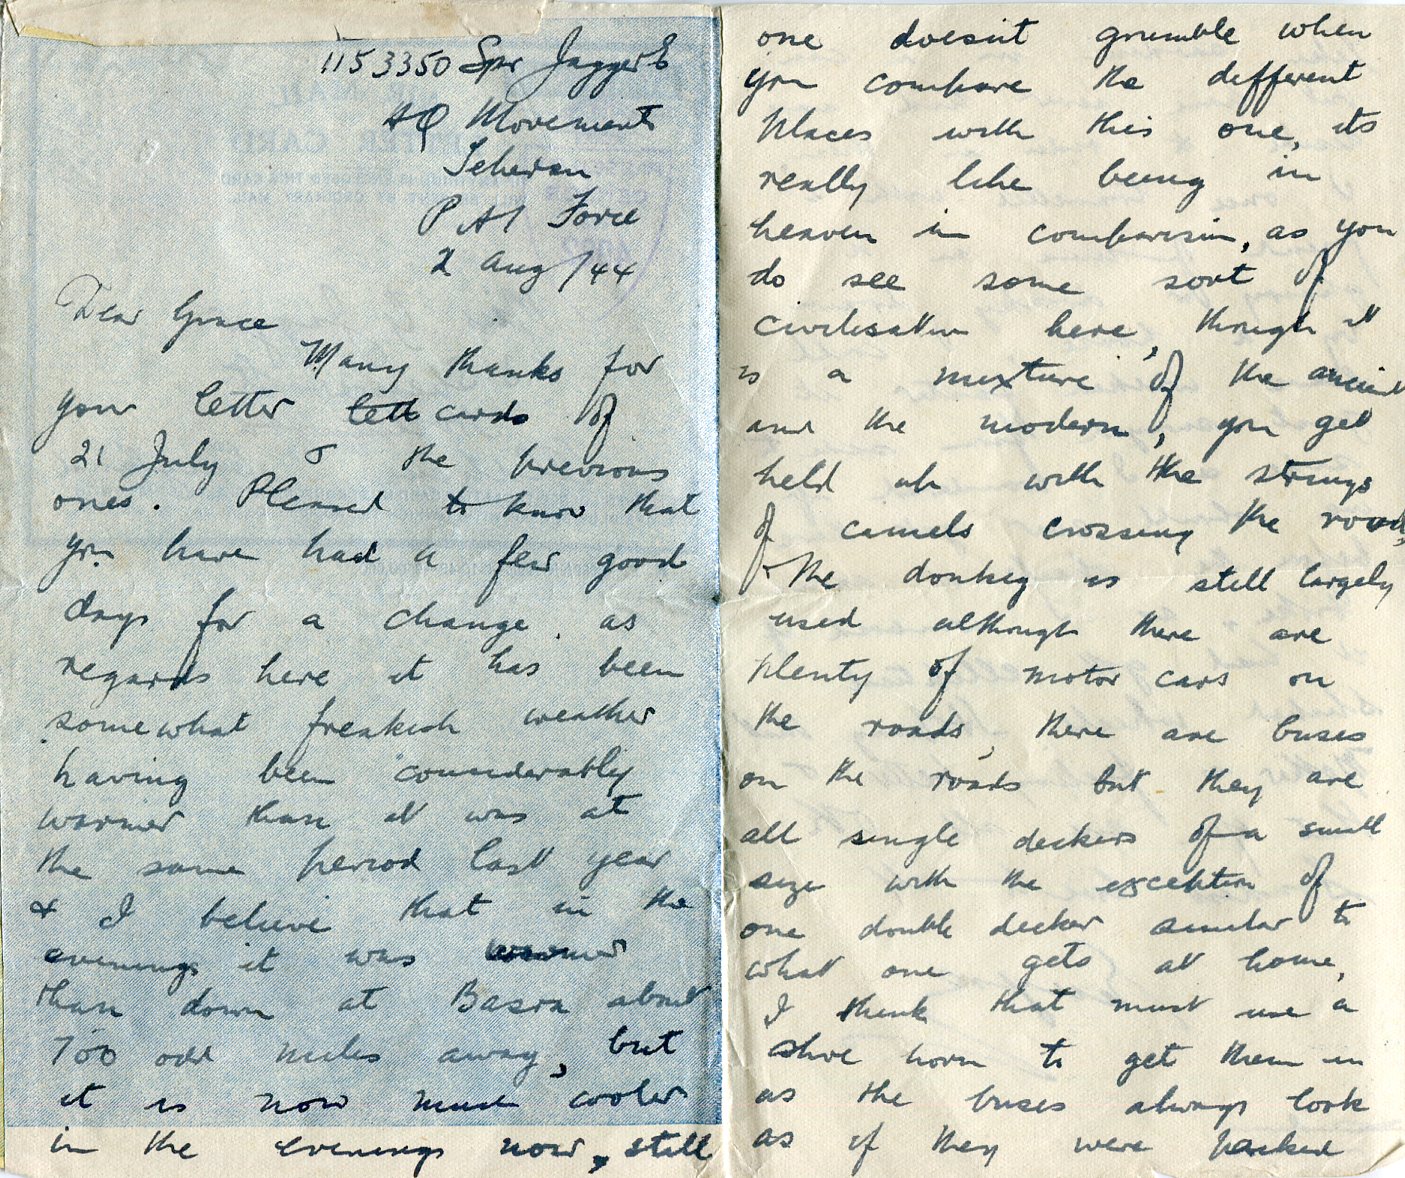 1153350 Spr Jagger E
HQ Movements
Teheran
P A I Force
2 Aug /44
Dear Grace
Many thanks for
your letter lett cards of
21 July & the previous
ones. Pleased to know that
you have had a few good
days for a change, as
regards here it has been
somewhat freakish weather
having been considerably
warmer than it was at
the same period last year
& I believe that in the
evenings it was warmer
than down at Basra about
700 odd miles away, but
it is now much cooler
in the evenings now, still
one doesn't grumble when
you compare the different
places with this one, its
really like being in
heaven in comparison, as you
do see some sort of
civilisation here, though it
is a mixture of the ancient
and the modern, you get
held up with the strings
of camels crossing the road,
& the donkey is still largely
used although there are
plenty of motor cars on
the roads, there are buses
on the roads but they are
all single deckers of a small
size with the exception of
one double decker similar to
what one gets at home,
I think that must use a
shoe horn to get them in
as the buses always look
as if they were packed